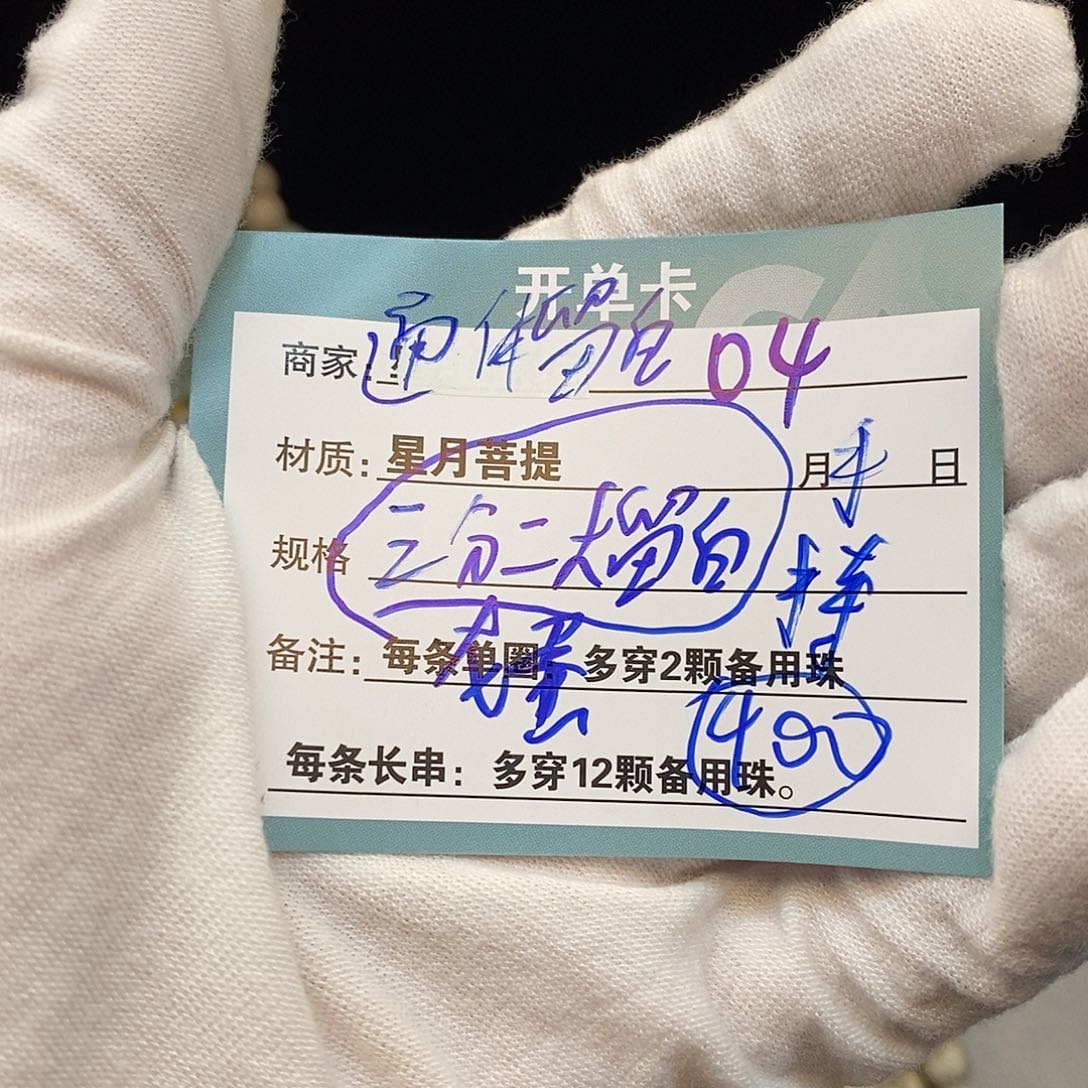 开单卡
通体留白 04
商家:
材质: 星月菩提 月 日
规格 三分二大留白
备注: 每条单圈: 多穿2颗备用珠
400
每条长串: 多穿12颗备用珠。